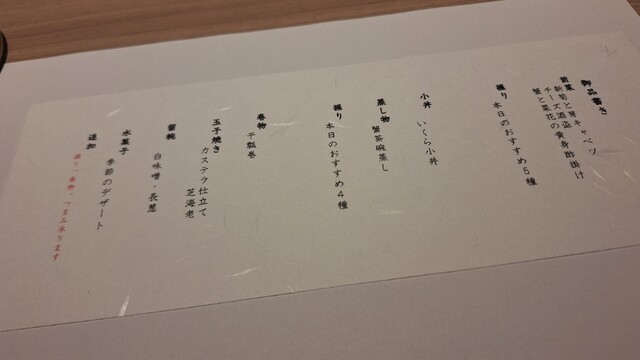 御品書き
前菜
新菊と芽キャベツ
チーズ酒盗の黄身酢掛け
蟹と菜花
握り
本日のおすすめ5種
小丼
いくら小丼
蒸し物
蟹茶碗蒸し
握り
本日のおすすめ4種
巻物
干瓢巻
玉子焼き
カステラ仕立て
芝海老
留椀
白味噌・長葱
水菓子
季節のデザート
追加
握り・巻物・つまみ承ります